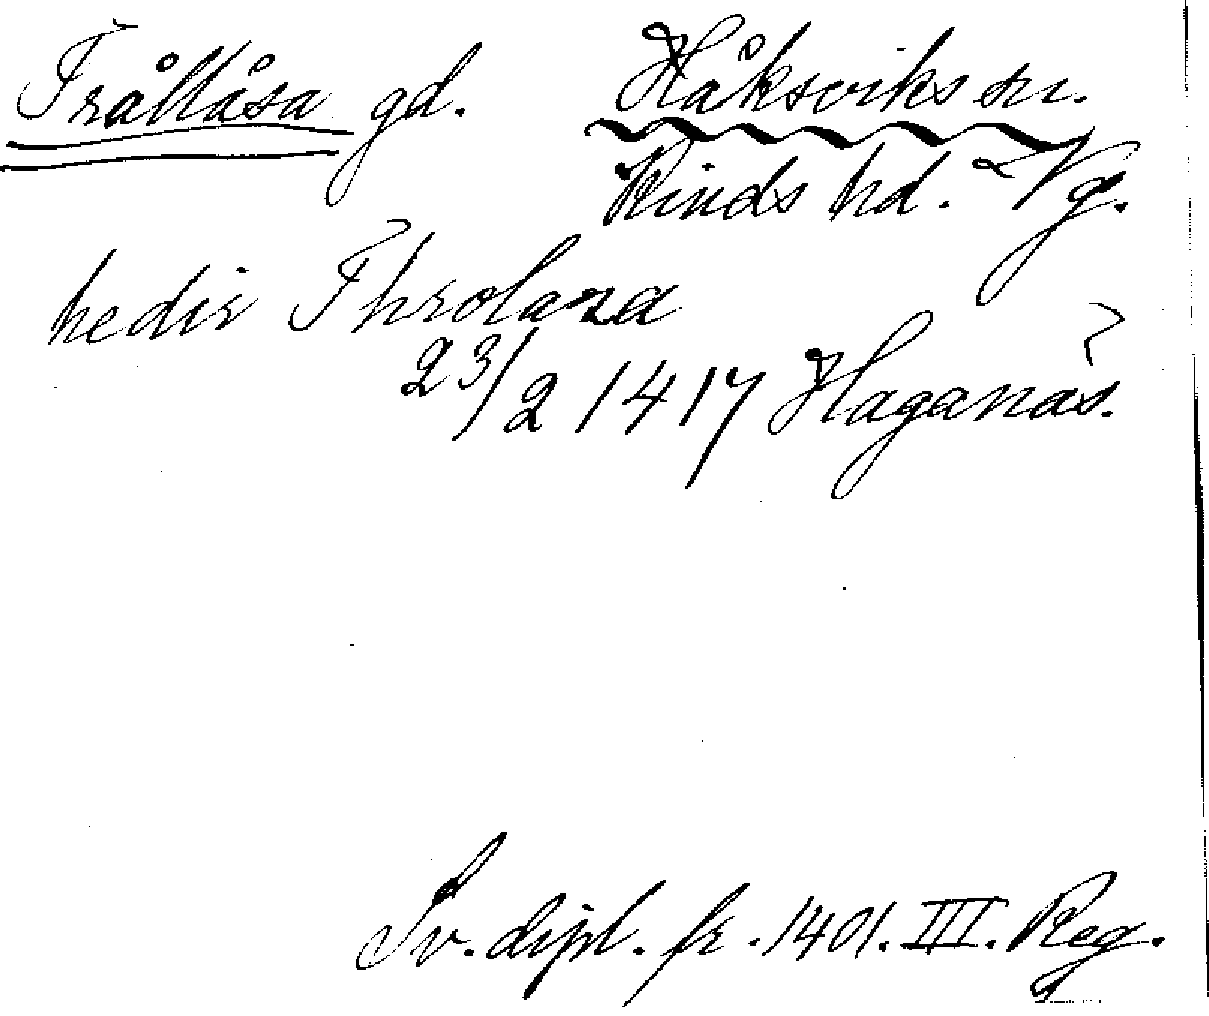 Trållåsa gd. Håksviks sn.
Kinds hd. Vg.
hedir Throlasa
23/2 1417 Haganäs.
Sv. dipl. fr. 1401. III. Reg.